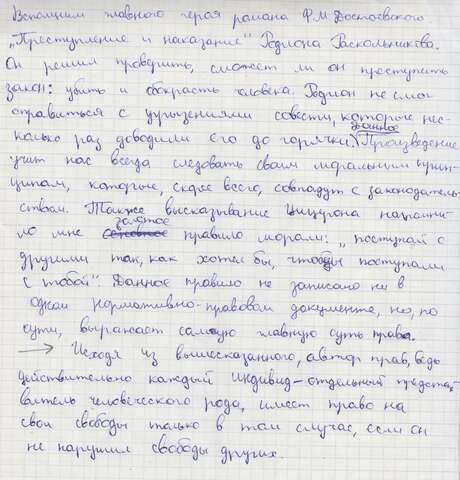 Вспомним главного героя романа Ф.М. Достоевского
„Преступление и наказание“ Родиона Раскольникова.
Он решил проверить, сможет ли он преступить
закон: убить и обокрасть человека. Родион не смог
справиться с угрызениями совести, которые нес-
колько раз доводили его до горячки. Данное Произведение
учит нас всегда следовать своим моральным прин-
ципам, которые, скорее всего, совпадут с законодатель-
ством. Также высказывание Цицерона напомни-
ло мне золотое правило морали: „поступай с
другими так, как хотел бы, чтобы поступали
с тобой“. Данное правило не записано ни в
одном нормативно-правовом документе, но, по
сути, выражает самую главную суть права.
→ Исходя из вышесказанного, автор прав, ведь
действительно каждый индивид – отдельный предста-
витель человеческого рода, имеет право на
свои свободы только в том случае, если он
не нарушил свободы других.